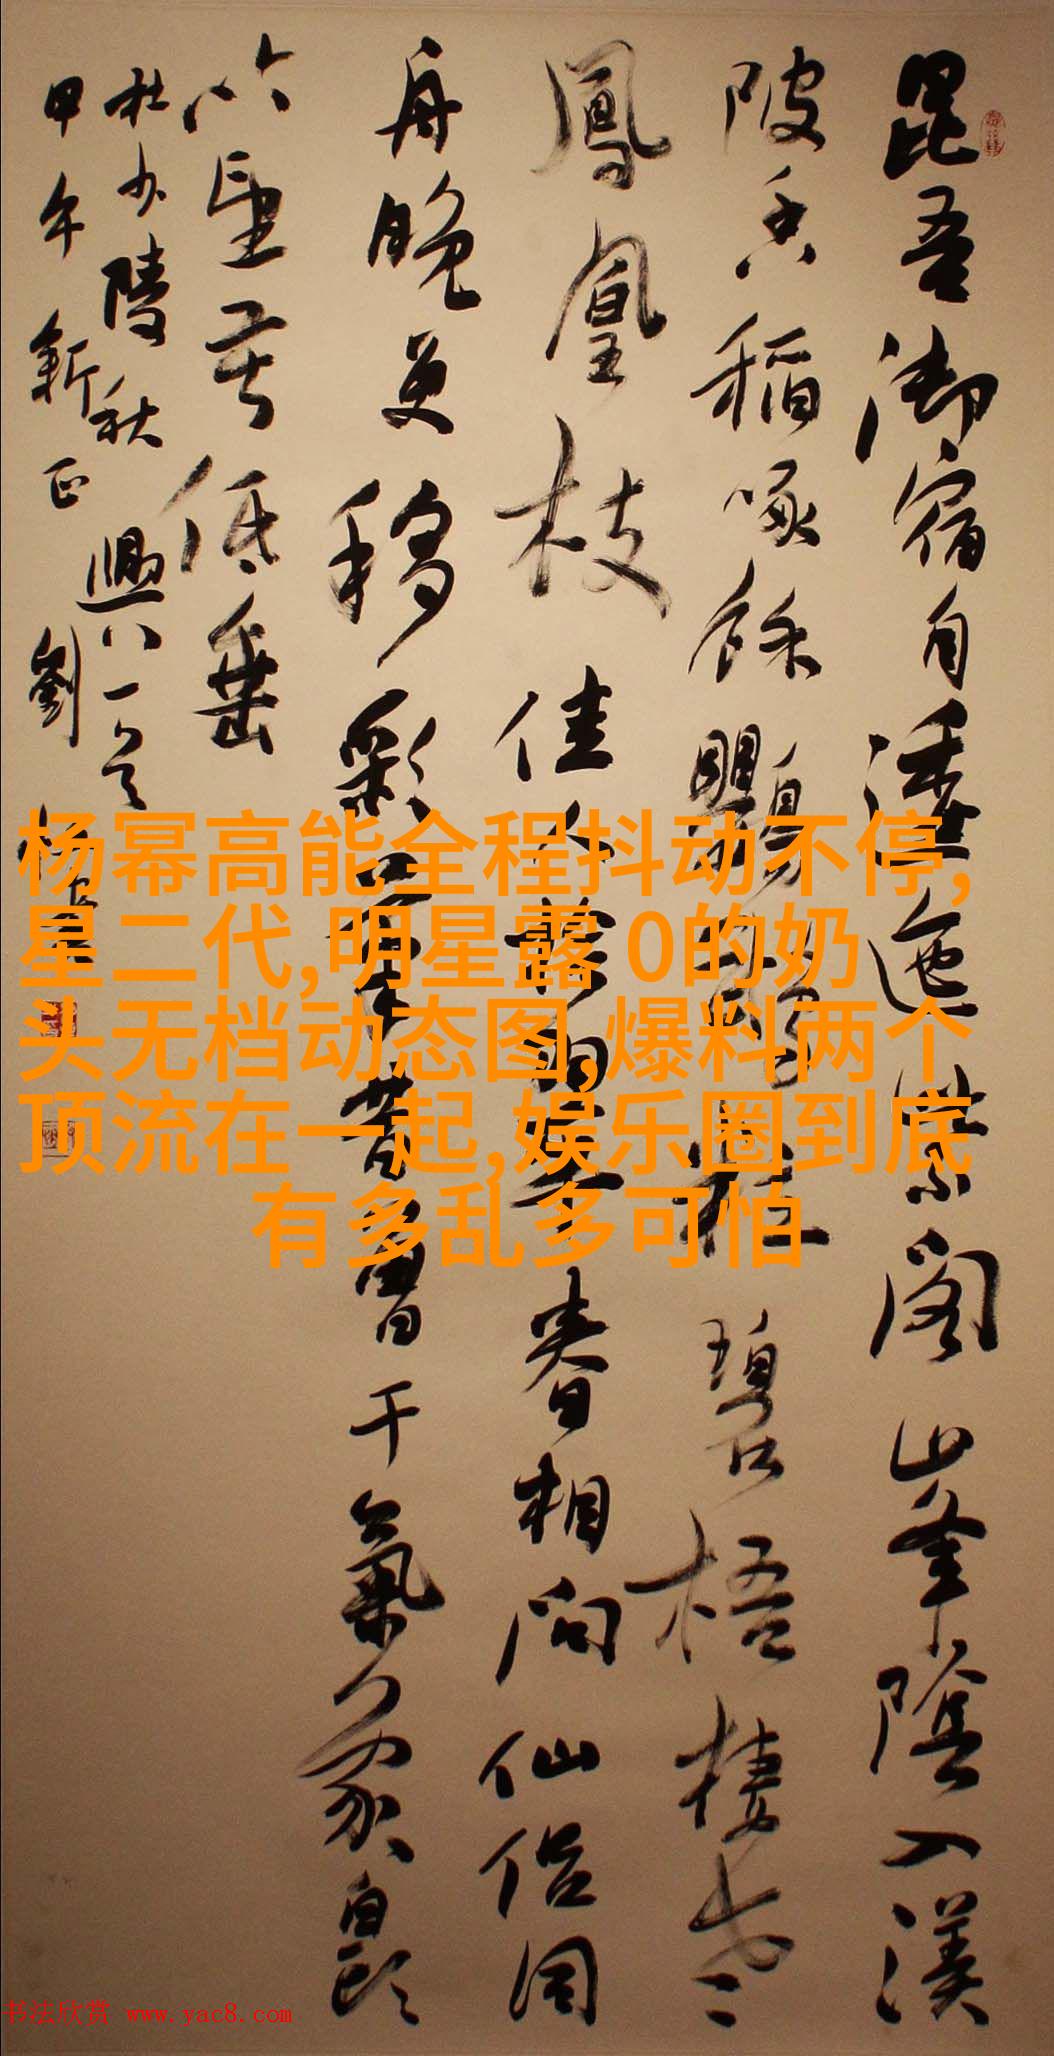 昆吾御宿自逶迤紫閣山峯陰入渼
陂香稻啄餘鸚鵡粒碧梧棲老
鳳凰枝佳人拾翠春相問仙侶同
舟晚更移彩筆昔曾干氣象白頭
吟望苦低垂
杜少陵秋興八一首
甲午新正劉
杨幂高能全程抖动不停,
星二代,明星露 0的奶
头无档动态图,爆料两个
顶流在一起,娱乐圈到底
有多乱多可怕
书法欣赏 www.yac8.com